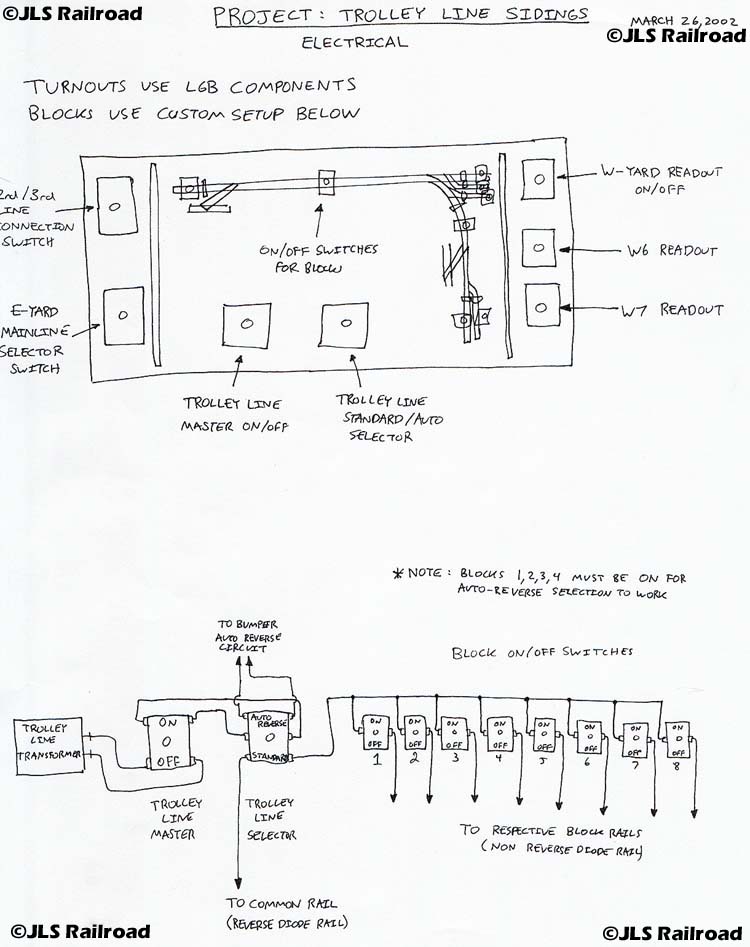 ©JLS Railroad
PROJECT: TROLLEY LINE SIDINGS
MARCH 26, 2002
©JLS Railroad
ELECTRICAL
TURNOUTS USE LGB COMPONENTS
BLOCKS USE CUSTOM SETUP BELOW
2nd/3rd
LINE
CONNECTION
SWITCH
E-YARD
MAINLINE
SELECTOR
SWITCH
ON/OFF SWITCHES
FOR BLOCK
W-YARD READOUT
ON/OFF
W6 READOUT
W7 READOUT
TROLLEY LINE
MASTER ON/OFF
TROLLEY LINE
STANDARD/AUTO
SELECTOR
*NOTE: BLOCKS 1,2,3,4 MUST BE ON FOR
AUTO-REVERSE SELECTION TO WORK
TO BUMPER
AUTO REVERSE
CIRCUIT
BLOCK ON/OFF SWITCHES
TROLLEY
LINE
TRANSFORMER
ON
OFF
AUTO
REVERSE
STANDARD
ON
OFF
1
ON
OFF
2
ON
OFF
3
ON
OFF
4
ON
OFF
5
ON
OFF
6
ON
OFF
7
ON
OFF
8
TROLLEY
LINE
MASTER
TROLLEY
LINE
SELECTOR
TO RESPECTIVE BLOCK RAILS
(NON REVERSE DIODE RAIL)
TO COMMON RAIL
(REVERSE DIODE RAIL)
©JLS Railroad
©JLS Railroad